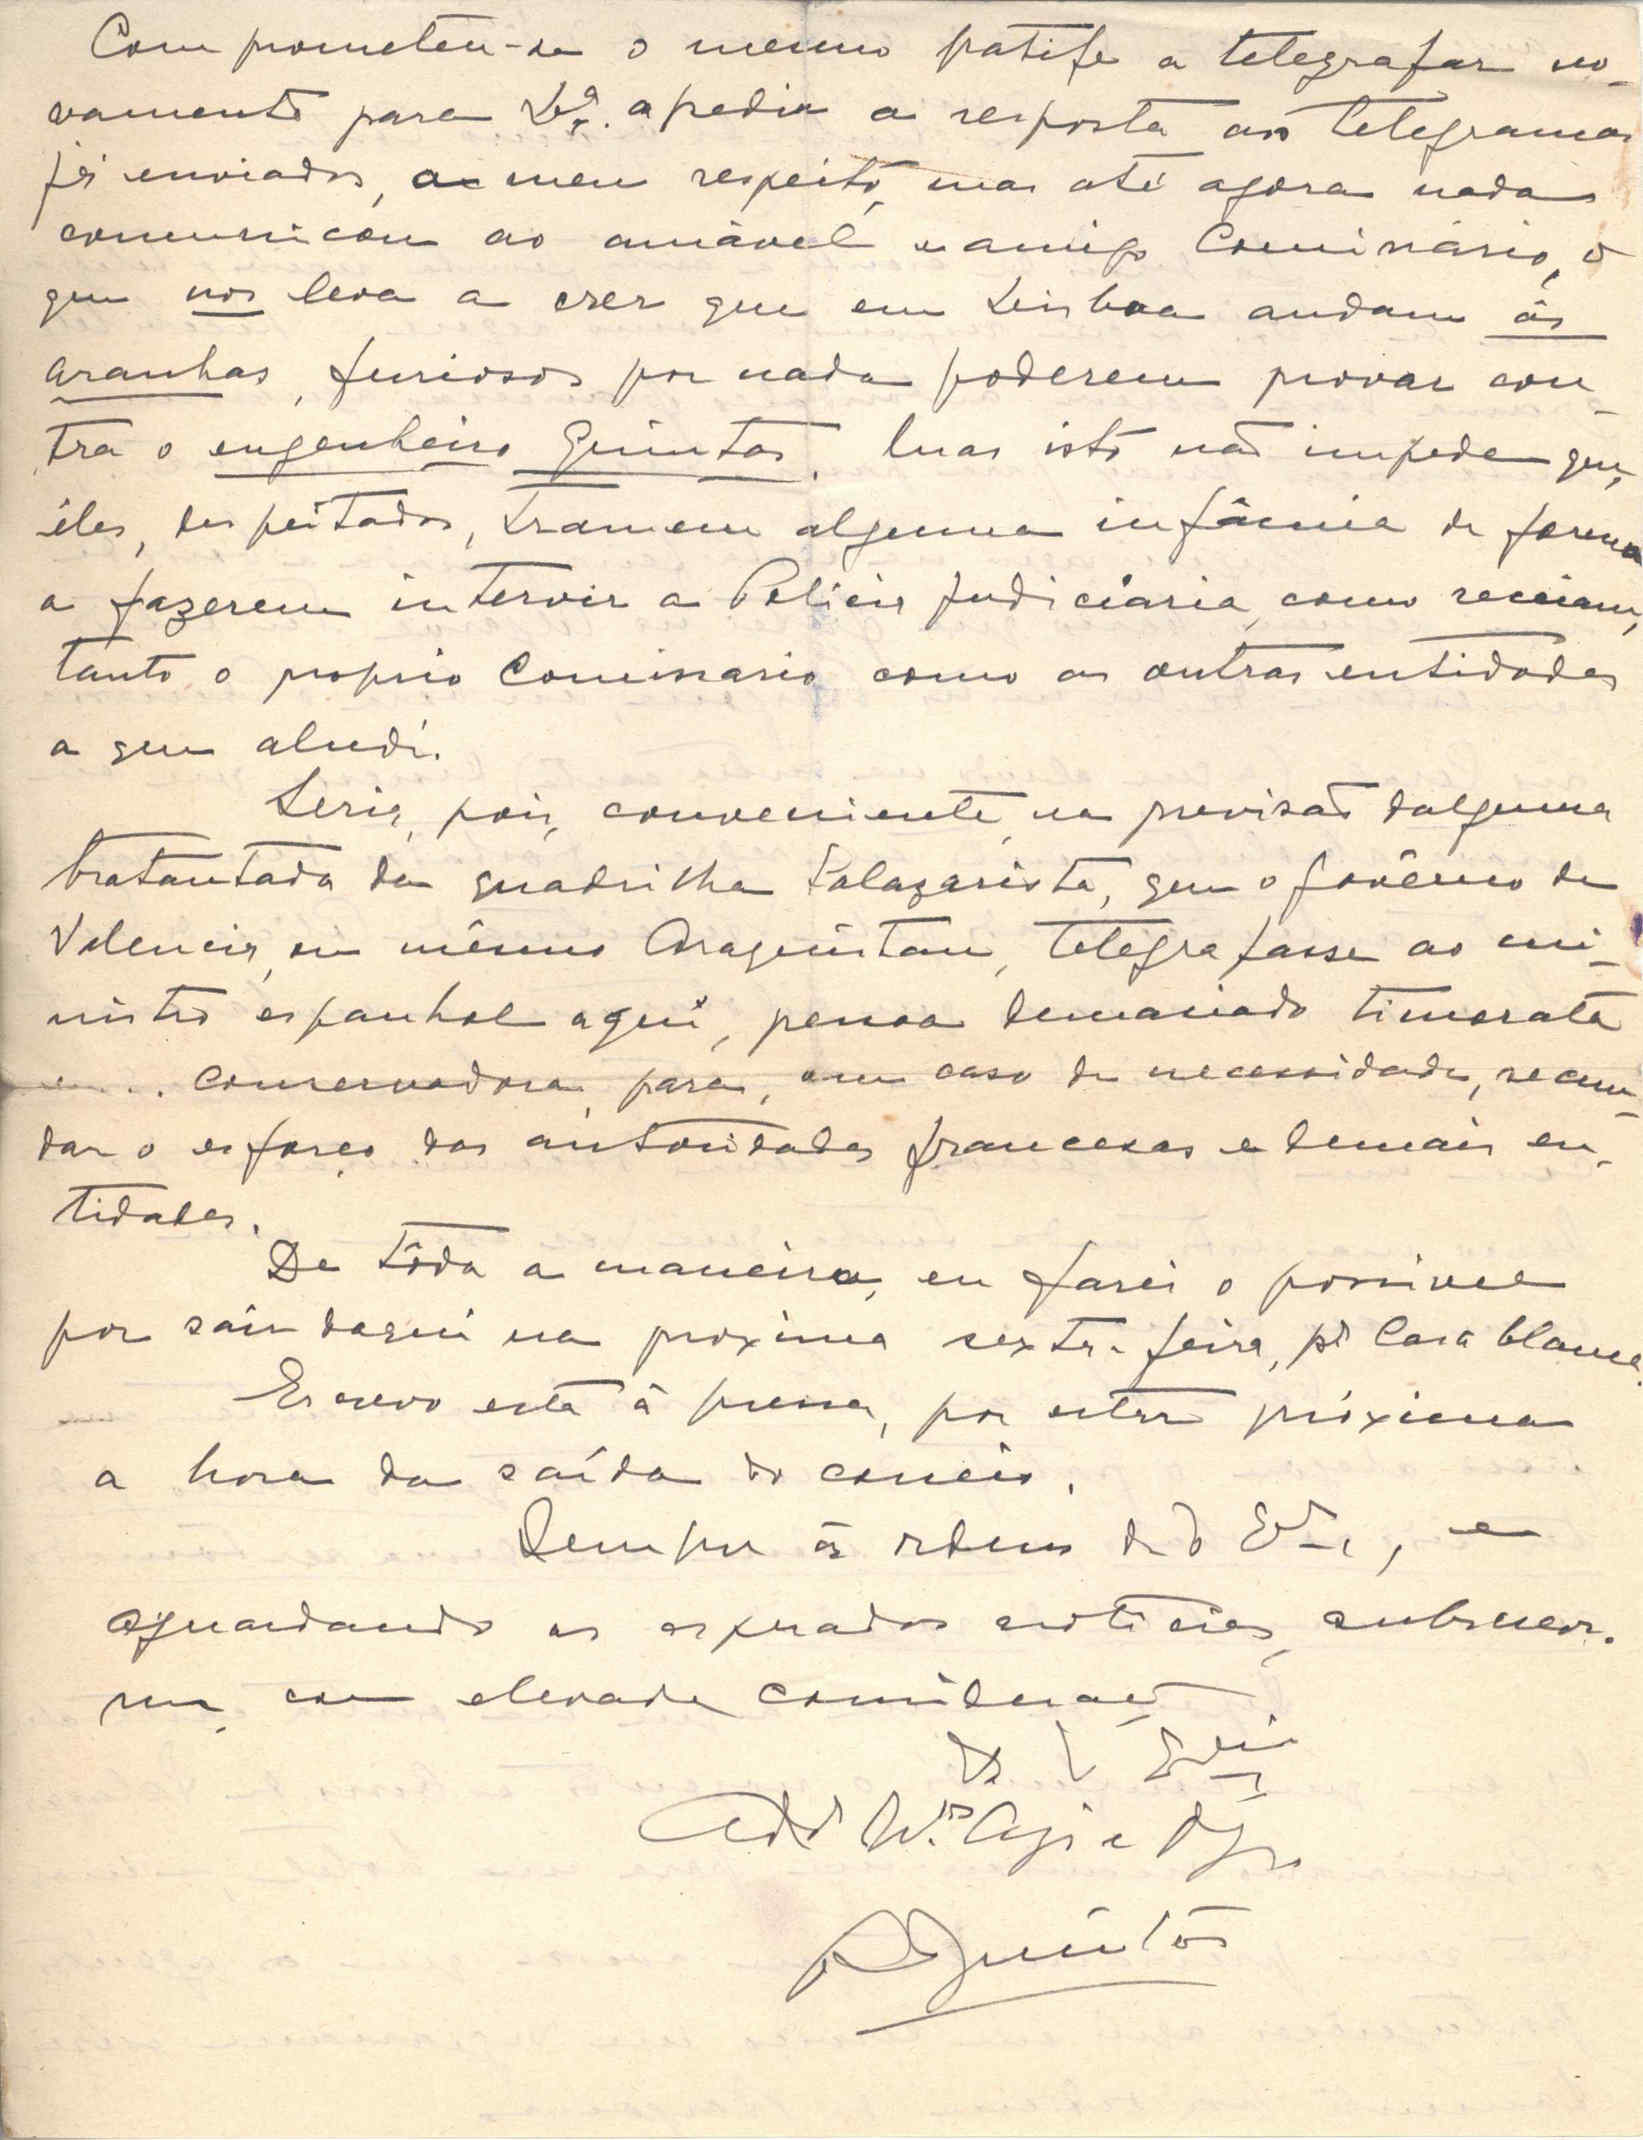 Comprometeu-se o mesmo patife a telegrafar no-
vamente para Lxª. a pedir a resposta aos telegramas
já enviados, a meu respeito, mas até agora nada
comunicou ao amável e amigo Comissário, o
que nos leva a crer que em Lisboa andam ás
aranhas, furiosos por nada poderem provar con-
tra o engenheiro Quintas. Mas isto não impede que,
êles, despeitados, tramem alguma infâmia de forma
a fazerem intervir a Policia Judiciaria, como receiam,
tanto o proprio Comissario como as outras entidades
a que aludi.
Seria, pois, conveniente, na previsão dalguma
tratantada da quadrilha Salazarista, que o govêrno de
Valencia, ou mêsmo Araquistain, telegrafasse ao mi-
nistro espanhol aqui, pessoa demasiado timorata
e... conservadora, para, em caso de necessidade, secun-
dar o esforço das autoridades francesas e demais en-
tidades.
De tôda a maneira, eu farei o possivel
por saír daqui na proxima sexta-feira, pª Casablanca.
Escrevo esta á pressa, por estar próxima
a hora da saída do correio.
Sempre ás ordens de V Exª, e
aguardando as esperadas noticias, subscrev.
me, com elevada consideração
De V. Exª
Quintas